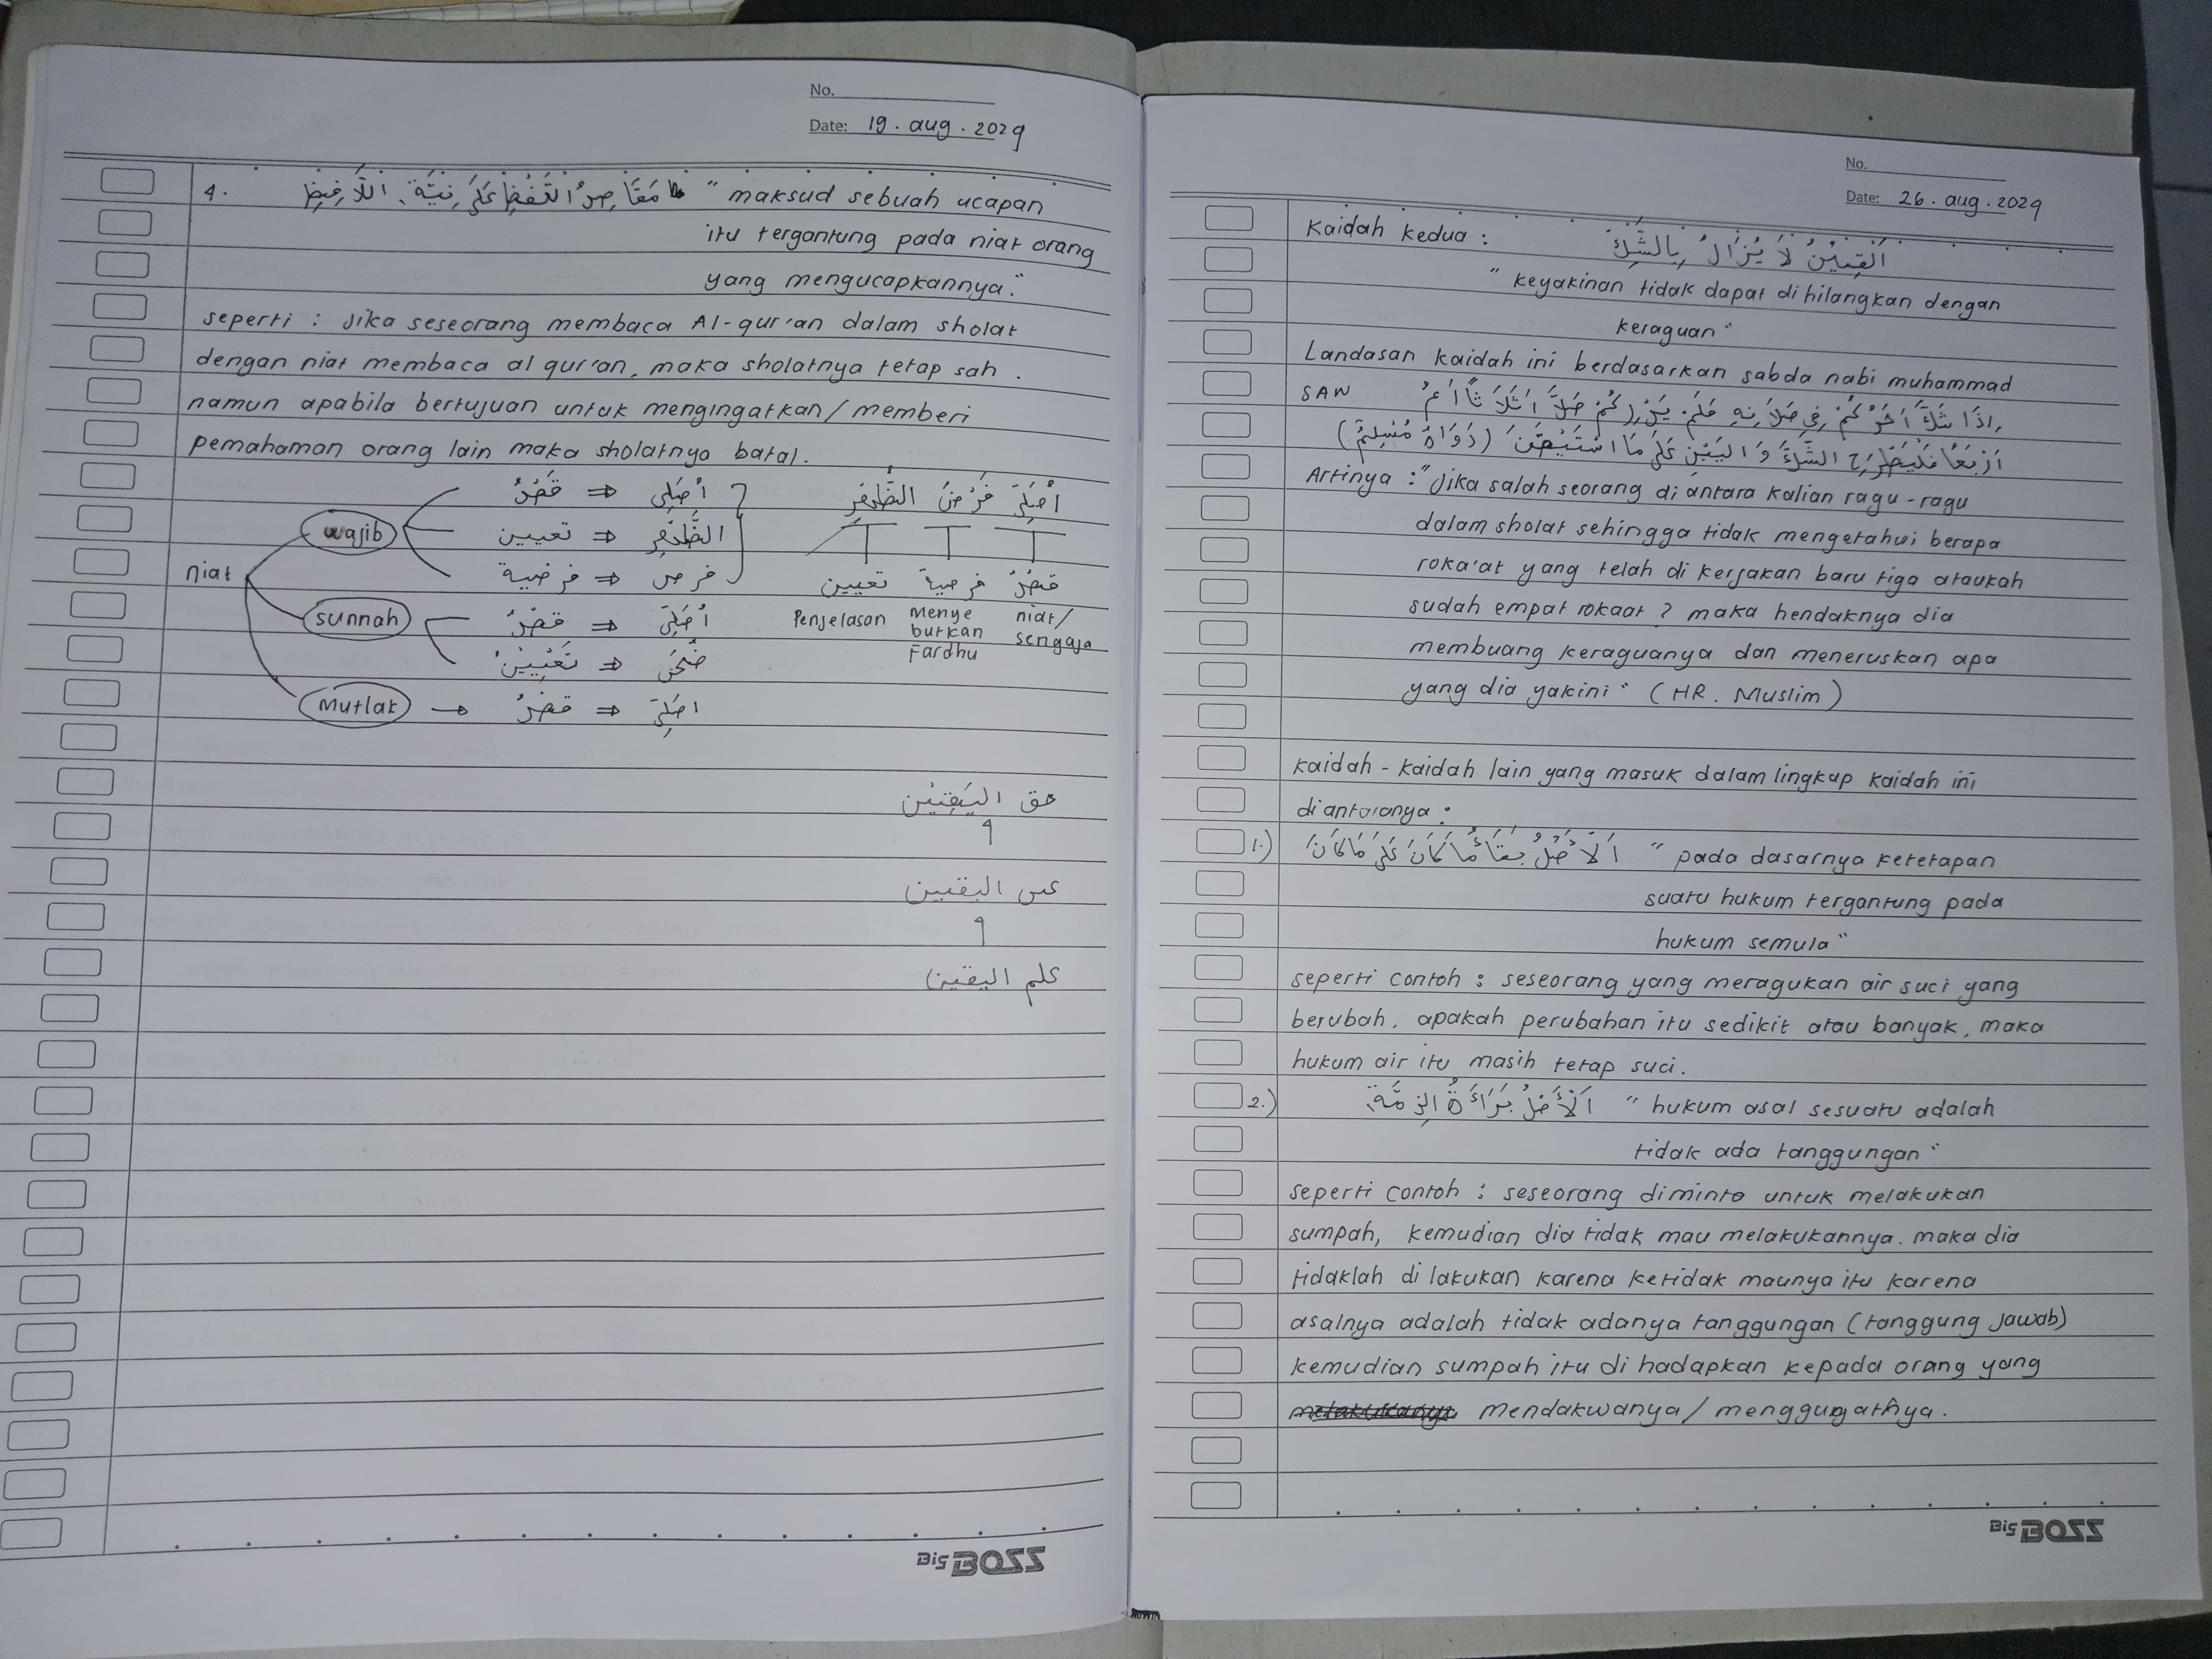 No.
Date: 19. aug. 2029
4. مَقَاصِدُ اللَّفْظِ عَلَى نِيَّةِ اللَّافِظِ " maksud sebuah ucapan
itu tergantung pada niat orang
yang mengucapkannya."
seperti : Jika seseorang membaca Al-qur'an dalam sholat
dengan niat membaca al qur'an, maka sholatnya tetap sah.
namun apabila bertujuan untuk mengingatkan/memberi
pemahaman orang lain maka sholatnya batal.
niat
wajib
قَصْدُ ⇒ اُصَلِّى
تعيين ⇒ الظُّهْرِ
فرضية ⇒ فرض
sunnah
قصْدُ ⇒ اُصَلِّى
تَعْيِيْنُ ⇒ ضُحَى
Mutlak → قصْدُ ⇒ اصَلِّى
اُصَلِّى فَرْضَ الظُّهْرِ
قصْدُ فرضية تعيين
Penjelasan
Menye
butkan
Fardhu
niat/
sengaja
حق اليَقِيْن
9
عين اليقين
9
علم اليقين
Big BOSS
No.
Date: 26. aug. 2029
Kaidah kedua :
اَلْقِيْنُ لَا يُزَالُ بِالشَّكِّ
" keyakinan tidak dapat di hilangkan dengan
keraguan"
Landasan kaidah ini berdasarkan sabda nabi muhammad
SAW اِذَا شَكَّ اَحَدُكُمْ فِي صَلَاتِهِ فَلَمْ يَدْرِ كَمْ صَلَّى اَثَلَاثًا اَمْ
اَرْبَعًا فَلْيَطْرَحِ الشَّكَّ وَ اليَبْنِ عَلَى مَا اسْتَيْقَنَ (رَوَاهُ مُسْلِمٌ)
Artinya : "Jika salah seorang di antara kalian ragu-ragu
dalam sholat sehingga tidak mengetahui berapa
roka'at yang telah di kerjakan baru tiga ataukah
sudah empat rokaat ? maka hendaknya dia
membuang keraguanya dan meneruskan apa
yang dia yakini" (HR. Muslim)
kaidah-kaidah lain yang masuk dalam lingkup kaidah ini
diantaranya :
1.) اَلْاَصْلُ بَقَاءُ مَا كَانَ عَلَى مَا كَانَ " pada dasarnya ketetapan
suatu hukum tergantung pada
hukum semula"
seperti contoh : seseorang yang meragukan air suci yang
berubah, apakah perubahan itu sedikit atau banyak, maka
hukum air itu masih tetap suci.
2.) اَلْأَصْلُ بَرَاءَةُ الذِمَّةِ " hukum asal sesuatu adalah
tidak ada tanggungan"
seperti contoh : seseorang diminta untuk melakukan
sumpah, kemudian dia tidak mau melakukannya. maka dia
tidaklah di lakukan karena ketidak maunya itu karena
asalnya adalah tidak adanya tanggungan (tanggung jawab)
kemudian sumpah itu di hadapkan kepada orang yang
mendakwanya/menggugatnya.
Big BOSS